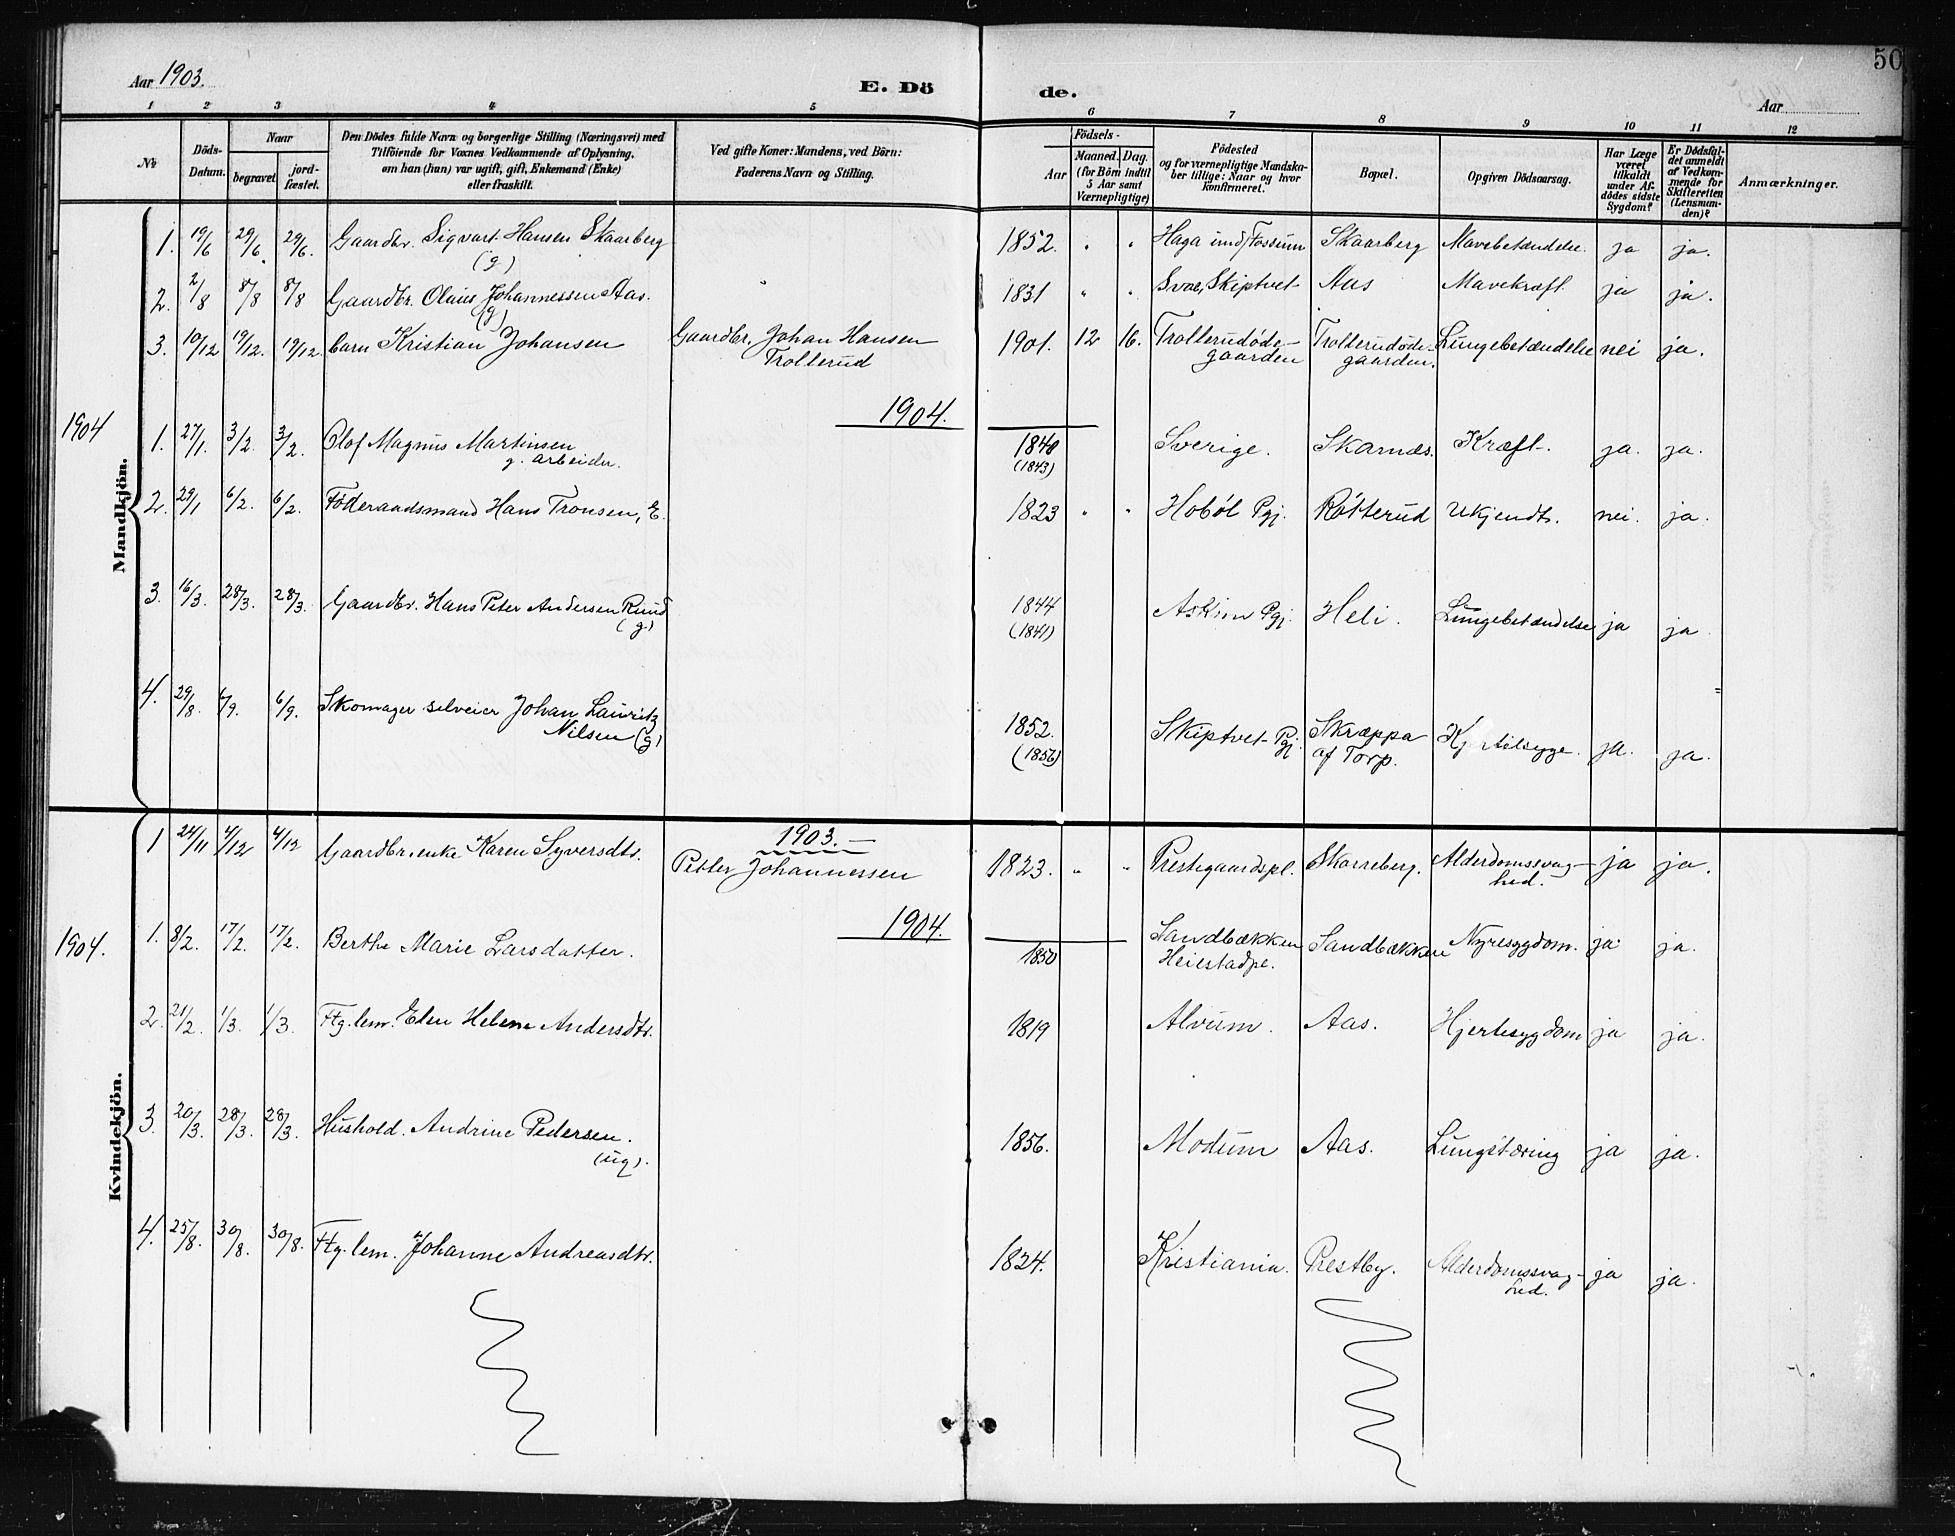 50
Aar 1903.
E. Dö de.
Aar
1 2 3 4 5 6 7 8 9 10 11 12
No
Döds-Datum.
Naar
begravet.
jord-fæstet.
Den Dödes fulde Navn og borgerlige Stilling (Næringsvei) med
Tilföiende for Voxnes Vedkommende af Oplysning,
om han (hun) var ugift, gift, Enkemand (Enke)
eller fraskilt.
Ved gifte Koner: Mandens, ved Börn:
Faderens Navn og Stilling.
Födsels-
Aar
Maaned. Dag.
(for Börn indtil
5 Aar samt
Værnepligtige)
Födested
og for værnepligtige Mandska-
ber tillige: Naar og hvor
konfirmeret.
Bopæl.
Opgiven Dödsaarsag.
Har Læge
været
tilkaldt
under Af-
dödes sidste
Sygdom?
Er Dödsfal-
det anmeldt
af Vedkom-
mende for
Skifteretten
(Lensman-
den)?
Anmærkninger.
Mandkjön.
1. 19/6 29/6. 29/6. Gaardbr. Sigvart Hansen Skaarberg 1852. " " Haga und/Fossum Skaarberg Mavebetændelse ja ja.
(g)
2. 2/8 8/8 8/8 Gaardbr. Olaus Johannessen Aas. " 1831 " " Svae, Skiptvet Aas Mavekræft ja ja.
(g)
3. 10/12 19/12. 19/12. barn Kristian Johansen Gaardbr. Johan Hansen 1901. 12 16. Trolterudøde- Trolterudøde- Lungebetændelse nei ja.
Trolterud gaarden gaarden.
1904 1904.
1. 27/1. 3/2. 3/2. Olof Magnus Martinsen 1840 Sverige. Skarnæs. Kræft. ja. ja.
g. arbeider. (1843)
2. 29/1 6/2. 6/2. Föderaadsmand Hans Tronsen, E. 1823 " " Hoböl Pgj. Rötterud Ukjendt. nei. ja.
3. 16/3. 28/3. 28/3. Gaardbr. Hans Peter Andersen Ruud 1844 Askim Pgj. Heli. Lungebetændelse ja ja
(g) (1841)
4. 29/8. 6/9. 6/9. Skomager selveier Johan Lauritz 1852. Skiptvet Pgj. Skræppa ja. ja.
Nilsen (g) (1856) af Torp.
Kvindekjön.
1903.
1 24/11 4/12 4/12 Gaardbr.enke Karen Syversdtr. Petter Johannessen 1823. " " Prestegaardspl. Skorreberg. Alderdomssvag- ja ja.
hed.
1904. 1904.
1. 8/2. 17/2. 17/2. Berthe Marie Larsdatter. 1850 Sandbækken Sandbækken Nyresygdom. ja ja.
Heiestadpl.
2. 21/2. 1/3. 1/3. Ftg.lem. Elen Helene Andersdtr. 1819 Alvum. Aas. Hjertesygdom ja ja.
3. 20/3. 28/3. 28/3. Hushold. Andrine Pedersen. 1856. Modum Aas. Lungetæring ja ja.
(ug).
4. 25/8. 30/8. 30/8. Ftg.lem. Johanne Andreasdtr. 1824. Kristiania. Prestby. Alderdomssvag- ja ja.
hed.